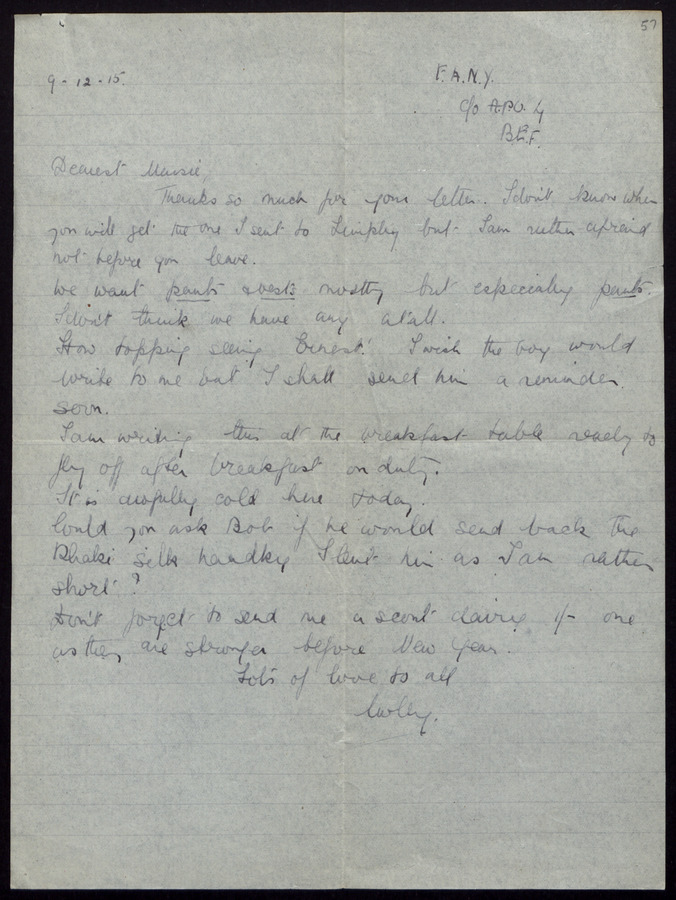 57
9-12-15.
F.A.N.Y.
c/o A.P.O. 4
BEF.
Dearest
Thanks so much for your letter. I don't know when
you will get the one I sent to but I am rather afraid
not before you leave.
We want pants & vests mostly but especially pants.
I don't think we have any at all.
How topping seeing Ernest! I wish the boy would
write to me but I shall send him a reminder
soon.
I am writing this at the breakfast table ready to
fly off after breakfast on duty.
It is awfully cold here today.
Could you ask Bob if he would send back the
Khaki silk handky I lent him as I am rather
short?
Don't forget to send me a scout dairy 1/- one
as they are stronger before New Year.
Lots of love to all